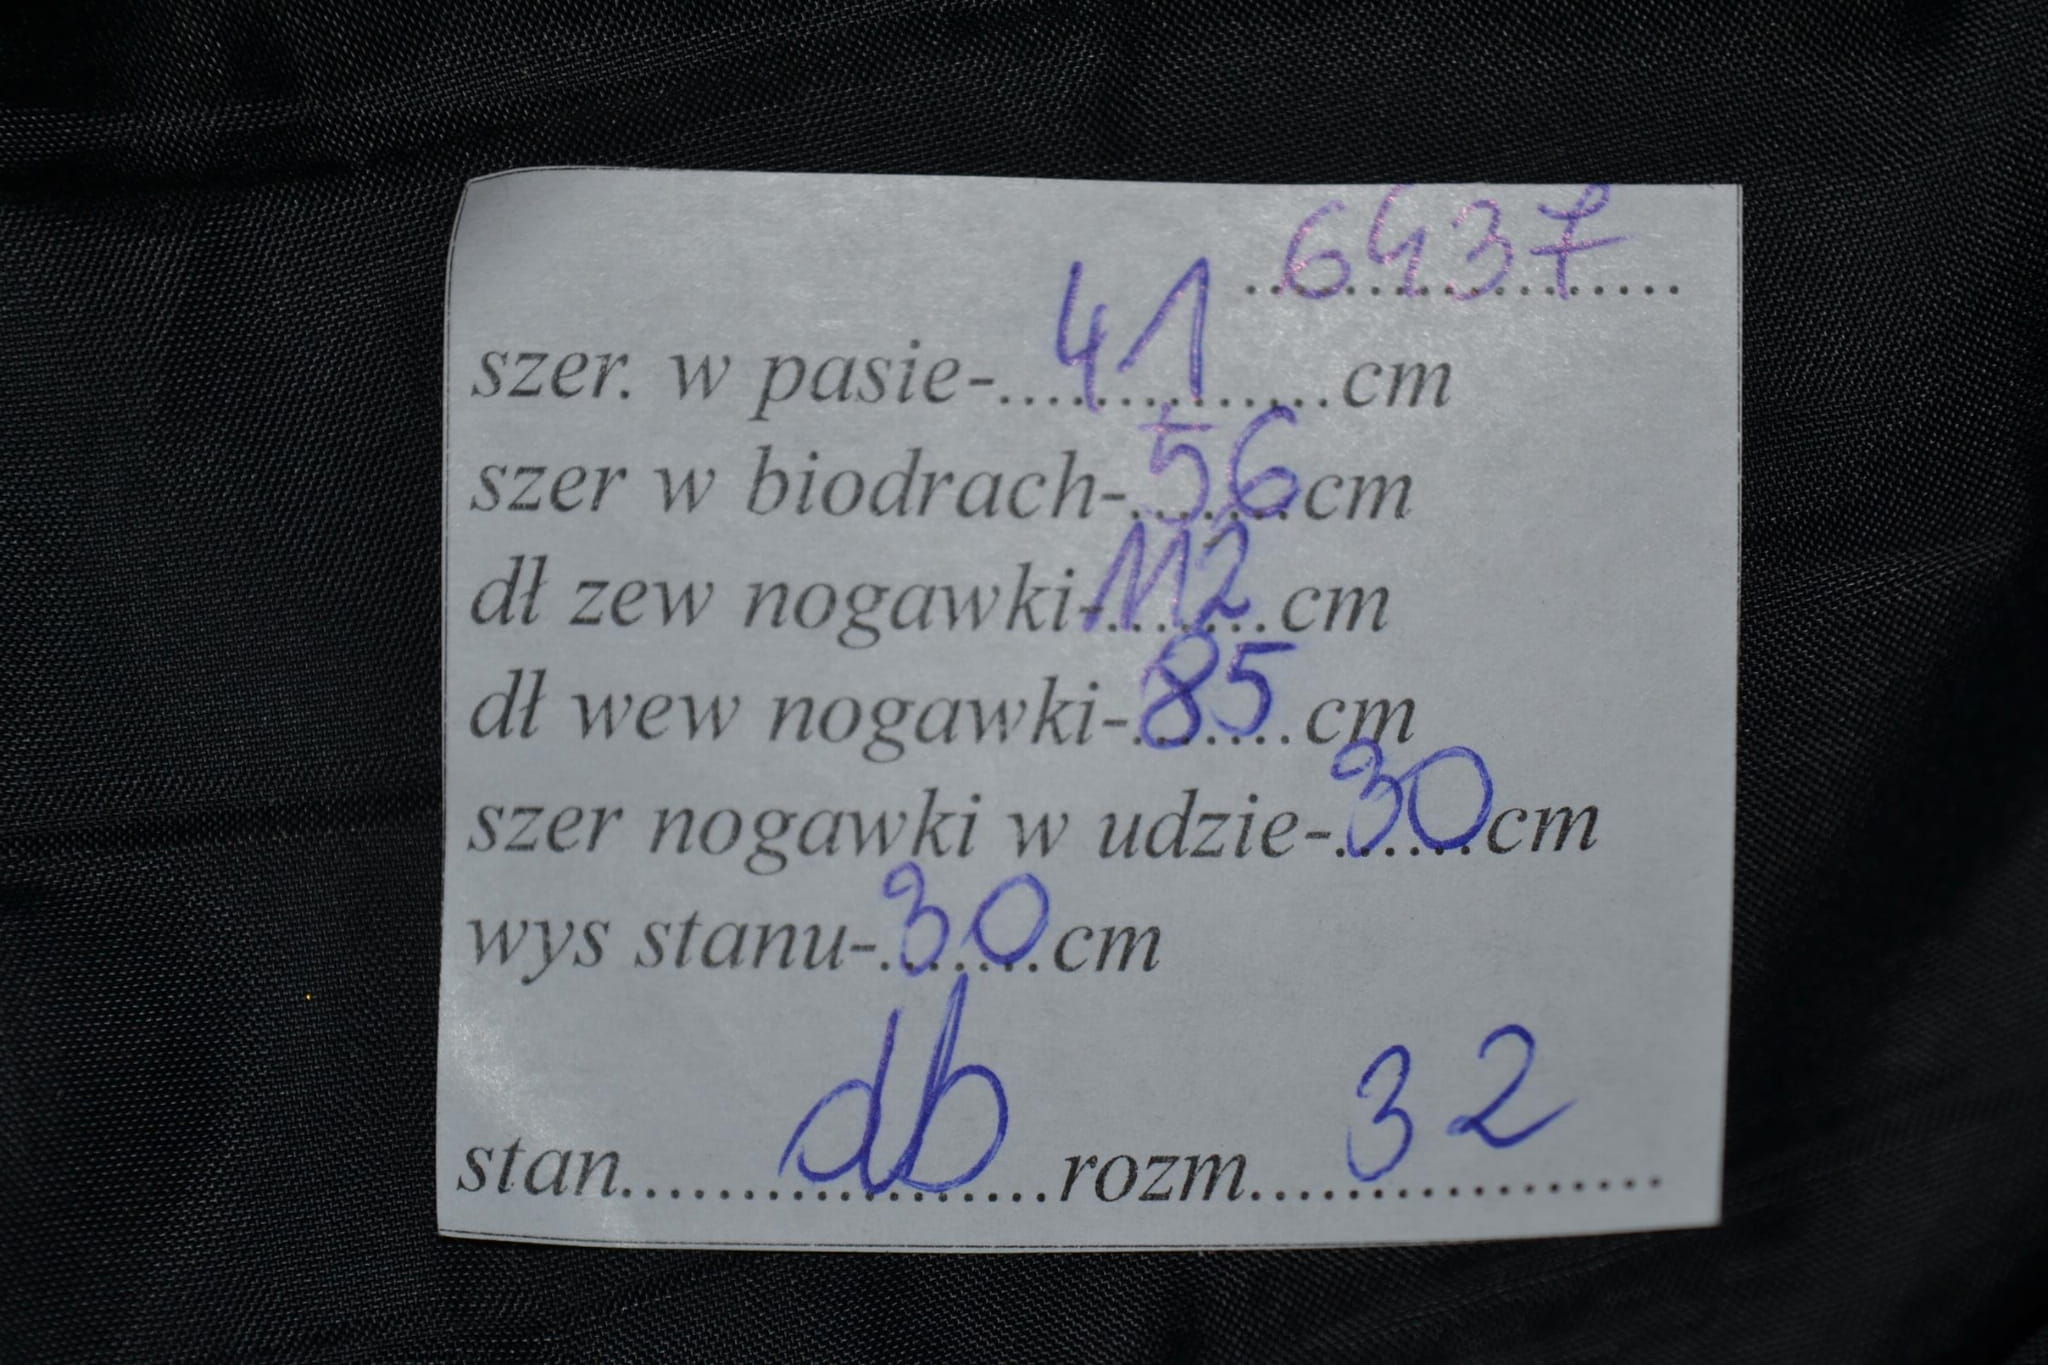 6437
szer. w pasie-41cm
szer w biodrach-56cm
dł zew nogawki-112cm
dł wew nogawki-85cm
szer nogawki w udzie-30cm
wys stanu-30cm
stan db rozm 32